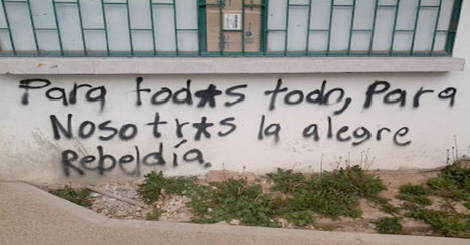 Para tod*s todo, Para
Nosotr*s la alegre
Rebeldía.